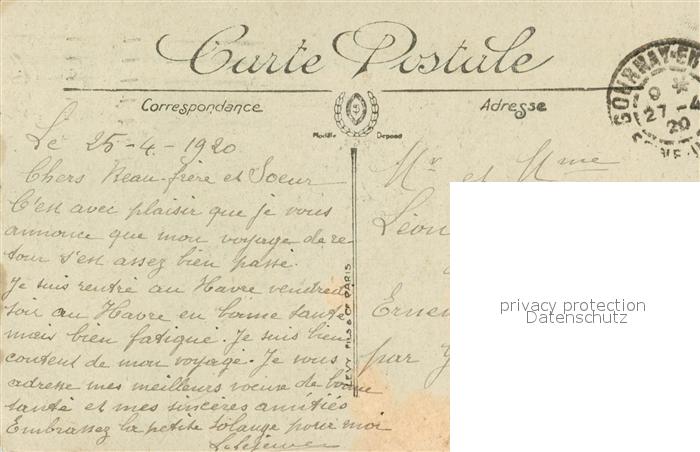 Carte Postale
Correspondance
Adresse
Modèle Déposé
GOURNAY-EN
9
27 - 4
20
SEINE-IN
Le 25-4-1920
Chers Beau-frère et Soeur
C'est avec plaisir que je vous
annonce que mon voyage de re
tour s'est assez bien passé.
Je suis rentré au Havre vendredi
soir au Havre en bonne santé
mais bien fatigué. Je suis bien
content de mon voyage. Je vous
adresse mes meilleurs voeux de bonne
santé et mes sincères amitiés
Embrassez la petite Solange pour moi
LEVY FILS & Cie PARIS
Mr et Mme
Léon
Ernem
par G
privacy protection
Datenschutz